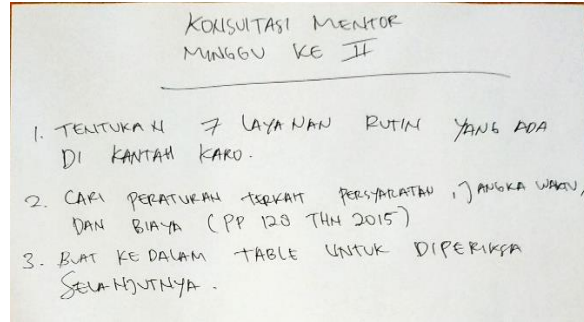 KONSULTASI MENTOR
MINGGU KE II
1. TENTUKAN 7 LAYANAN RUTIN YANG ADA
DI KANTAH KARO.
2. CARI PERATURAN TERKAIT PERSYARATAN, JANGKA WAKTU,
DAN BIAYA (PP 128 THN 2015)
3. BUAT KE DALAM TABLE UNTUK DIPERIKSA
SELANJUTNYA.